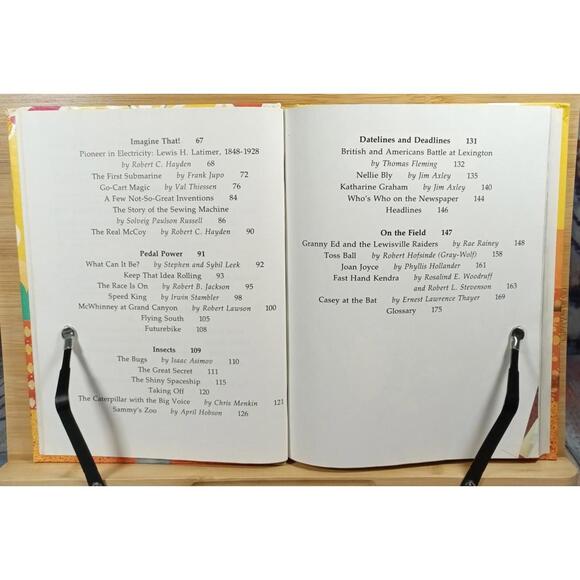 Imagine That! 67
Pioneer in Electricity: Lewis H. Latimer, 1848-1928
by Robert C. Hayden 68
The First Submarine by Frank Jupo 72
Go-Cart Magic by Val Thiessen 76
A Few Not-So-Great Inventions 84
The Story of the Sewing Machine
by Solveig Paulson Russell 86
The Real McCoy by Robert C. Hayden 90
Pedal Power 91
What Can It Be? by Stephen and Sybil Leek 92
Keep That Idea Rolling 93
The Race Is On by Robert B. Jackson 95
Speed King by Irwin Stambler 98
McWhinney at Grand Canyon by Robert Lawson 100
Flying South 105
Futurebike 108
Insects 109
The Bugs by Isaac Asimov 110
The Great Secret 111
The Shiny Spaceship 115
Taking Off 120
The Caterpillar with the Big Voice by Chris Menkin 121
Sammy's Zoo by April Hobson 126
Datelines and Deadlines 131
British and Americans Battle at Lexington
by Thomas Fleming 132
Nellie Bly by Jim Axley 135
Katharine Graham by Jim Axley 140
Who's Who on the Newspaper 144
Headlines 146
On the Field 147
Granny Ed and the Lewisville Raiders by Rae Rainey 148
Toss Ball by Robert Hofsinde (Gray-Wolf) 158
Joan Joyce by Phyllis Hollander 161
Fast Hand Kendra by Rosalind E. Woodruff
and Robert L. Stevenson 163
Casey at the Bat by Ernest Lawrence Thayer 169
Glossary 175